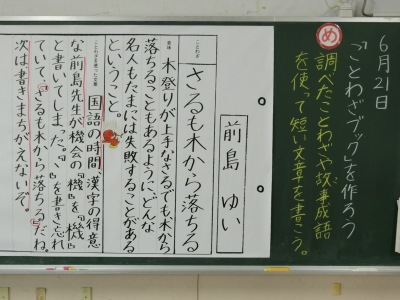 6月21日
「ことわざブック」を作ろう
め 調べたことわざや故事成語
を使って短い文章を書こう。
前島 ゆい
ことわざ
さるも木から落ちる
意味
木登りが上手なさるでも、木から
落ちることもあるように、どんな
名人もたまには失敗することがある
ということ。
ことわざを使った文章
国語の時間、漢字の得意
な前島先生が、機会の「機」を「機」
と書いてしまった。「、」を書き忘れ
ていて、「さるも木から落ちる」だね。
次は、書きまちがえないぞ。